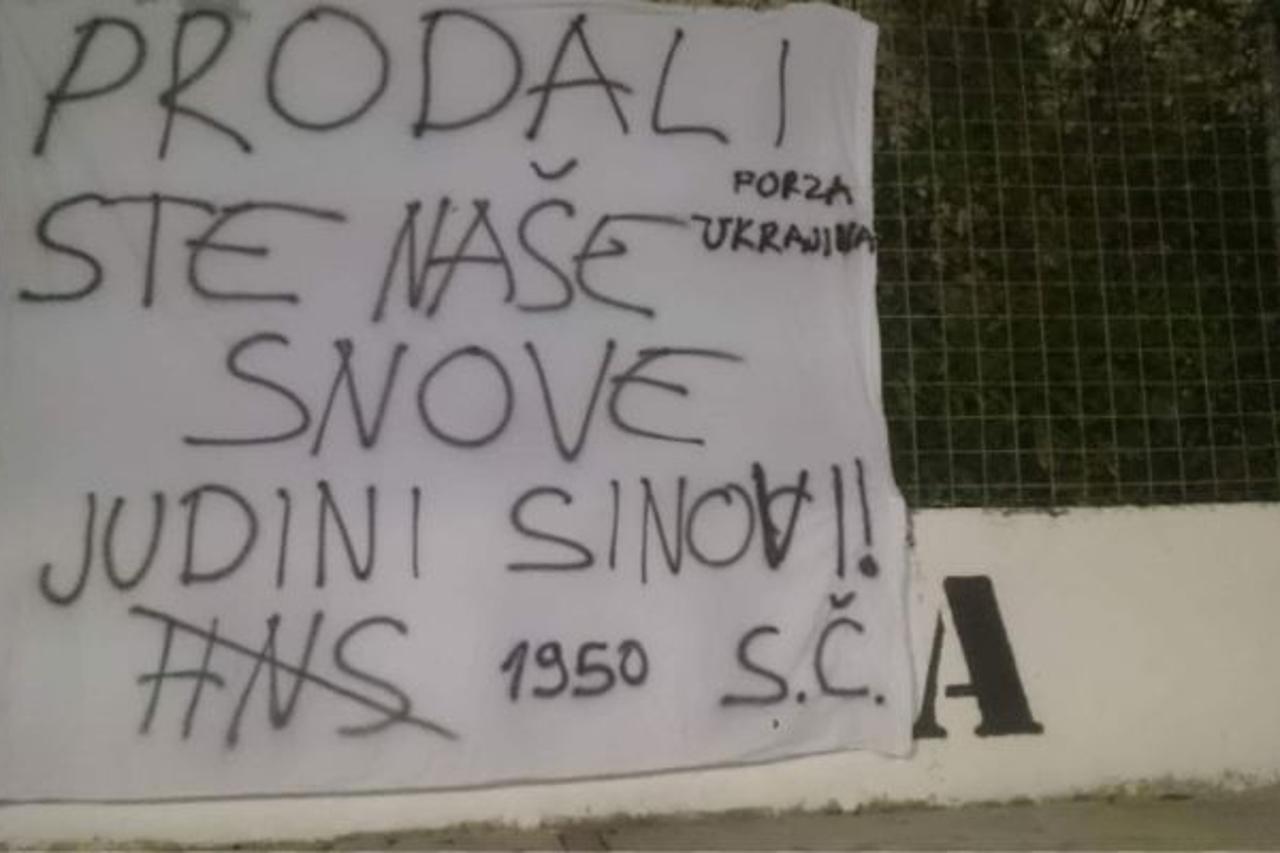 PRODALI
STE NAŠE
FORZA
UKRAJINA
SNOVE
JUDINI SINOVI!
HNS 1950 S.Č.
A